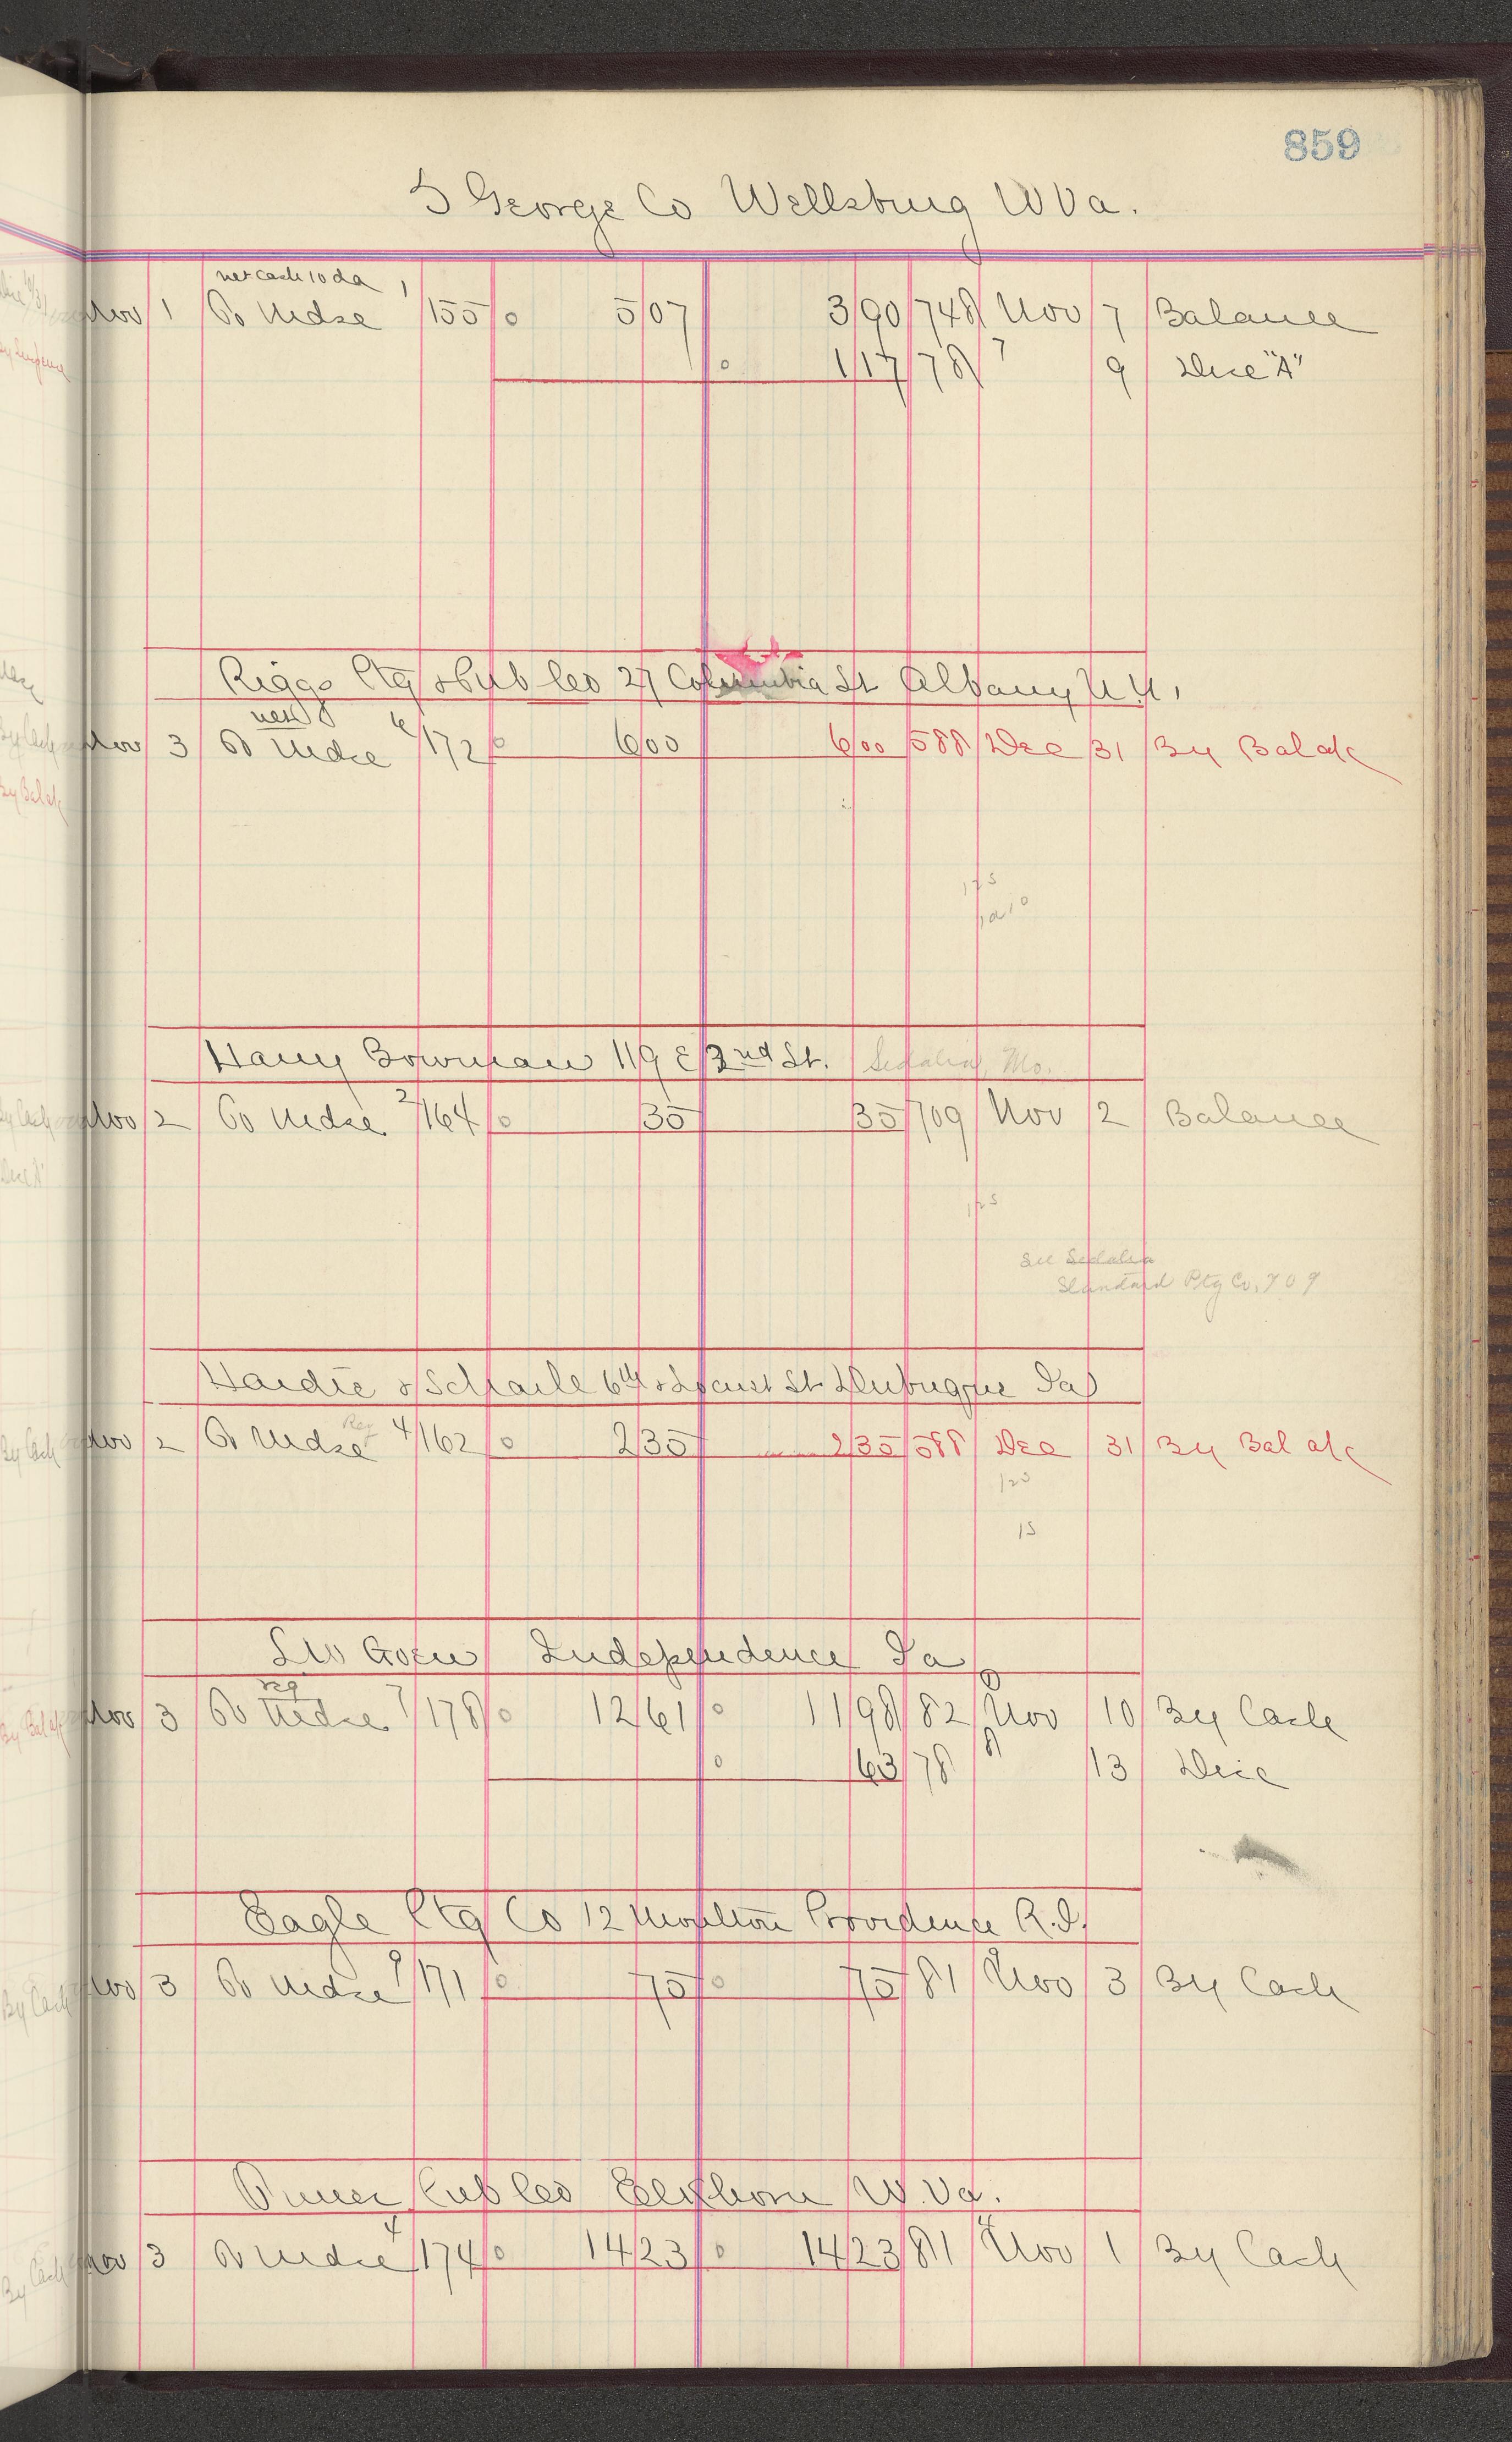 859
S George Co Wellsburg W Va.
net cash 10 da 1
Nov 1 To Mdse 155 0 5 07 3 90 748 Nov 7 Balance
0 1 17 78 7 9 Disc "A"
Riggs Ptg & Pub Co 27 Columbia St Albany N.Y.
net 6
Nov 3 To Mdse 172 0 6 00 6 00 588 Dec 31 By Bal a/c
Harry Bowman 119 E 2nd St. Sedalia, Mo.
Nov 2 To Mdse 2 164 0 35 35 709 Nov 2 Balance
See Sedalia
Standard Ptg Co, 709
Hardie & Scharle 6th & Locust St Dubuque Ia
Nov 2 To Mdse Reg 4 162 0 2 35 2 35 588 Dec 31 By Bal a/c
15
Independence Ia
reg 8
Nov 3 To Mdse 7 178 0 12 61 0 11 98 82 Nov 10 By Cash
0 63 78 8 13 Disc
Eagle Ptg Co 12 Moulton Providence R.I.
Nov 3 To Mdse 9 171 0 75 0 75 81 Nov 3 By Cash
Pub Co Elkhorn W. Va.
Nov 3 To Mdse 4 174 0 14 23 0 14 23 81 4 Nov 1 By Cash